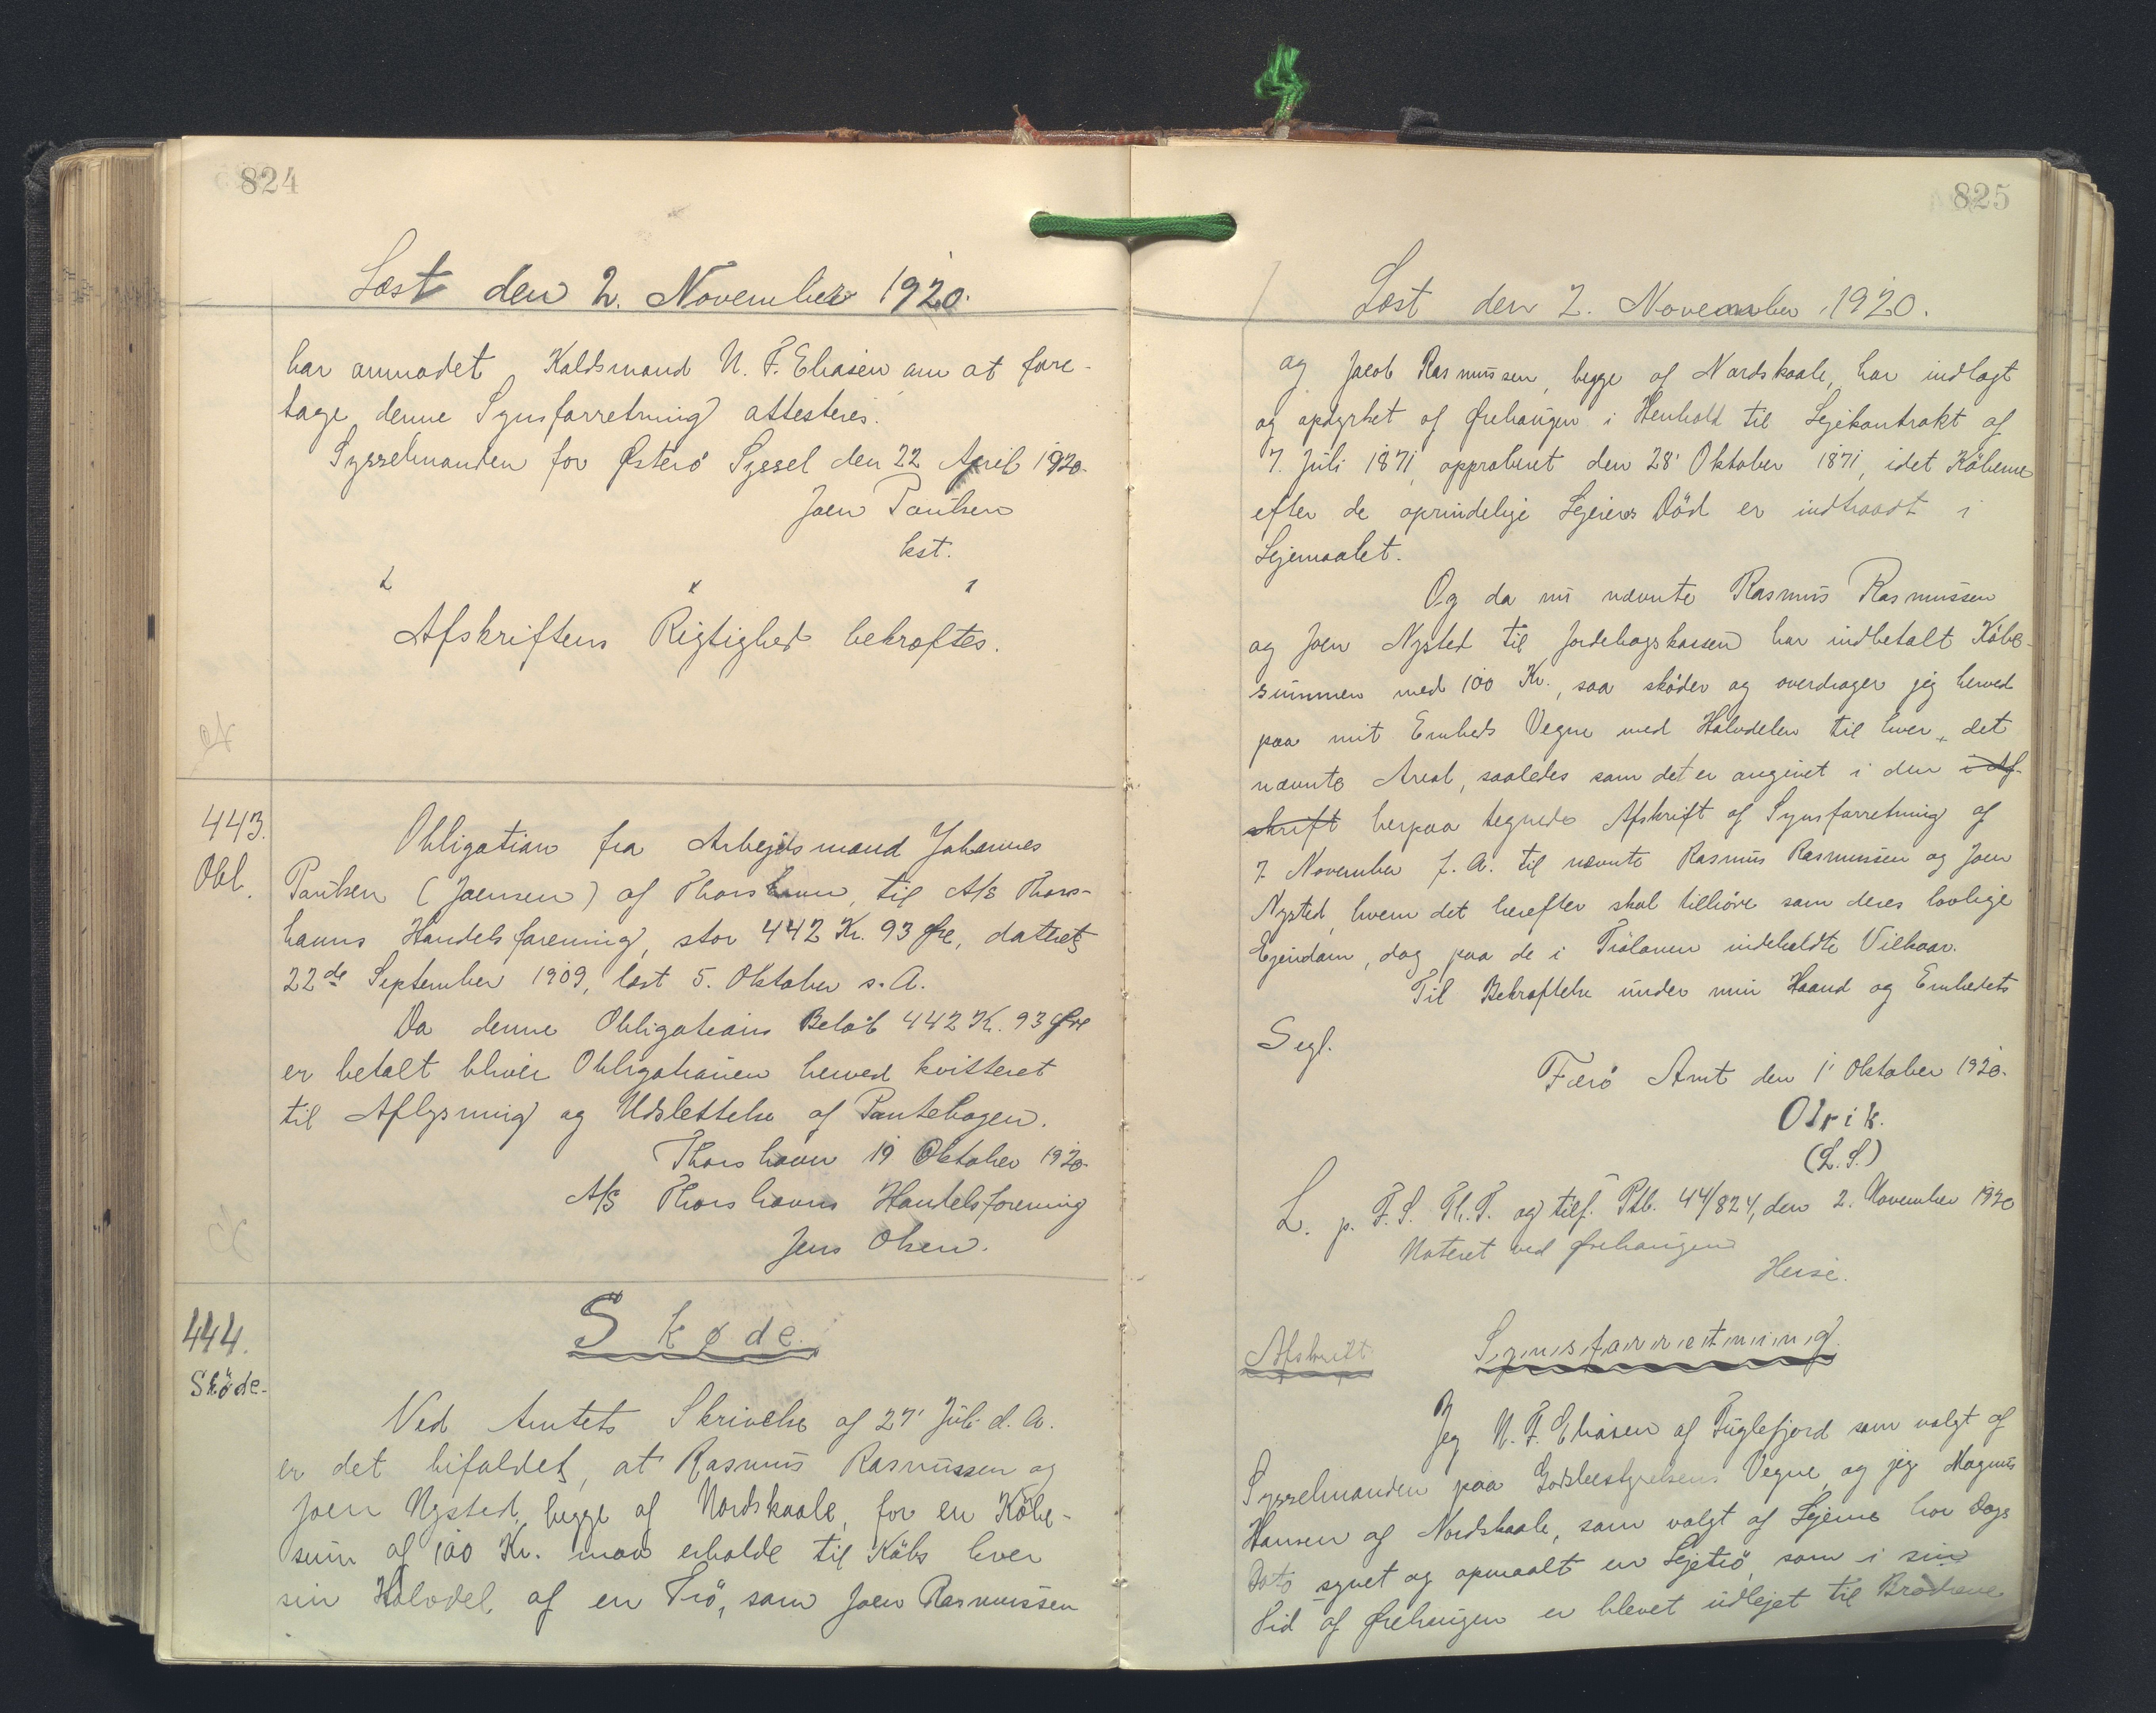 824
Læst den 2. November 1920.
har anmodet Kaldsmand N. F. Eliasen om at fore-
tage denne Synsforretning attesteres.
Sysselmanden for Østerö Syssel den 22 April 1920.
Joen Poulsen
kst.
Afskriftens Rigtighed bekræftes.
443.
Obl.
Obligation fra Arbejdsmand Johannes
Poulsen (Joensen) af Thorshavn, til A/S Thors-
havns Handelsforening, stor 442 Kr. 93 Øre, dateret
22de September 1909, læst 5. Oktober s. A.
Da denne Obligations Beløb 442 Kr. 93 Øre
er betalt bliver Obligationen herved kvitteret
til Aflysning og Udslettelse af Pantebogen.
Thorshavn 19 Oktober 1920.
A/S Thorshavns Handelsforening
Jens Olsen.
444.
Sköde.
Skøde.
Ved Amtets Skrivelse af 27' Juli d. A.
er det bifaldet, at Rasmus Rasmussen og
Joen Nysted, begge af Nordskaale, for en Köbe-
sum af 100 Kr. maa erholde til Köbs hver
sin Halvdel af en Trö, som Joen Rasmussen
825
Læst den 2. November 1920.
og Jacob Rasmussen, begge af Nordskaale, har indlagt
og opdyrket af Ørehaugen i Henhold til Lejekontrakt af
7. Juli 1871, approberet den 28' Oktober 1871, idet Köberne
efter de oprindelige Lejeres Död er indtraadt i
Lejemaalet.
Og da nu nævnte Rasmus Rasmussen
og Joen Nysted til Jordebogskassen har indbetalt Köbe-
summen med 100 Kr., saa sköder og overdrager jeg herved
paa mit Embeds Vegne med Halvdelen til hver, det
nævnte Areal, saaledes som det er angivet i den i Af-
skrift herpaa tegnede Afskrift af Synsforretning af
7 November f. A. til nævnte Rasmus Rasmussen og Joen
Nysted, hvem det herefter skal tilhöre som deres lovlige
Ejendom, dog paa de i Tröloven indeholdte Vilkaar.
Til Bekræftelse under min Haand og Embedets
Segl.
Færö Amt den 1' Oktober 1920.
Olrik.
(L.S.)
L. p. F. S. Th. T. og tilf. Ptb. 44/824, den 2. November 1920
Noteret ved Ørehaugen
Heise.
Afskrift.
Synsforretning.
Jeg N. F. Eliasen af Fuglefjord som valgt af
Sysselmanden paa Godsbestyrelsens Vegne, og jeg Magnus
Hansen af Nordskaale, som valgt af Lejerne har Dags
Dato synet og opmaalt en Lejetrö, som i sin
Tid af Ørehaugen er blevet udlejet til Brødrene